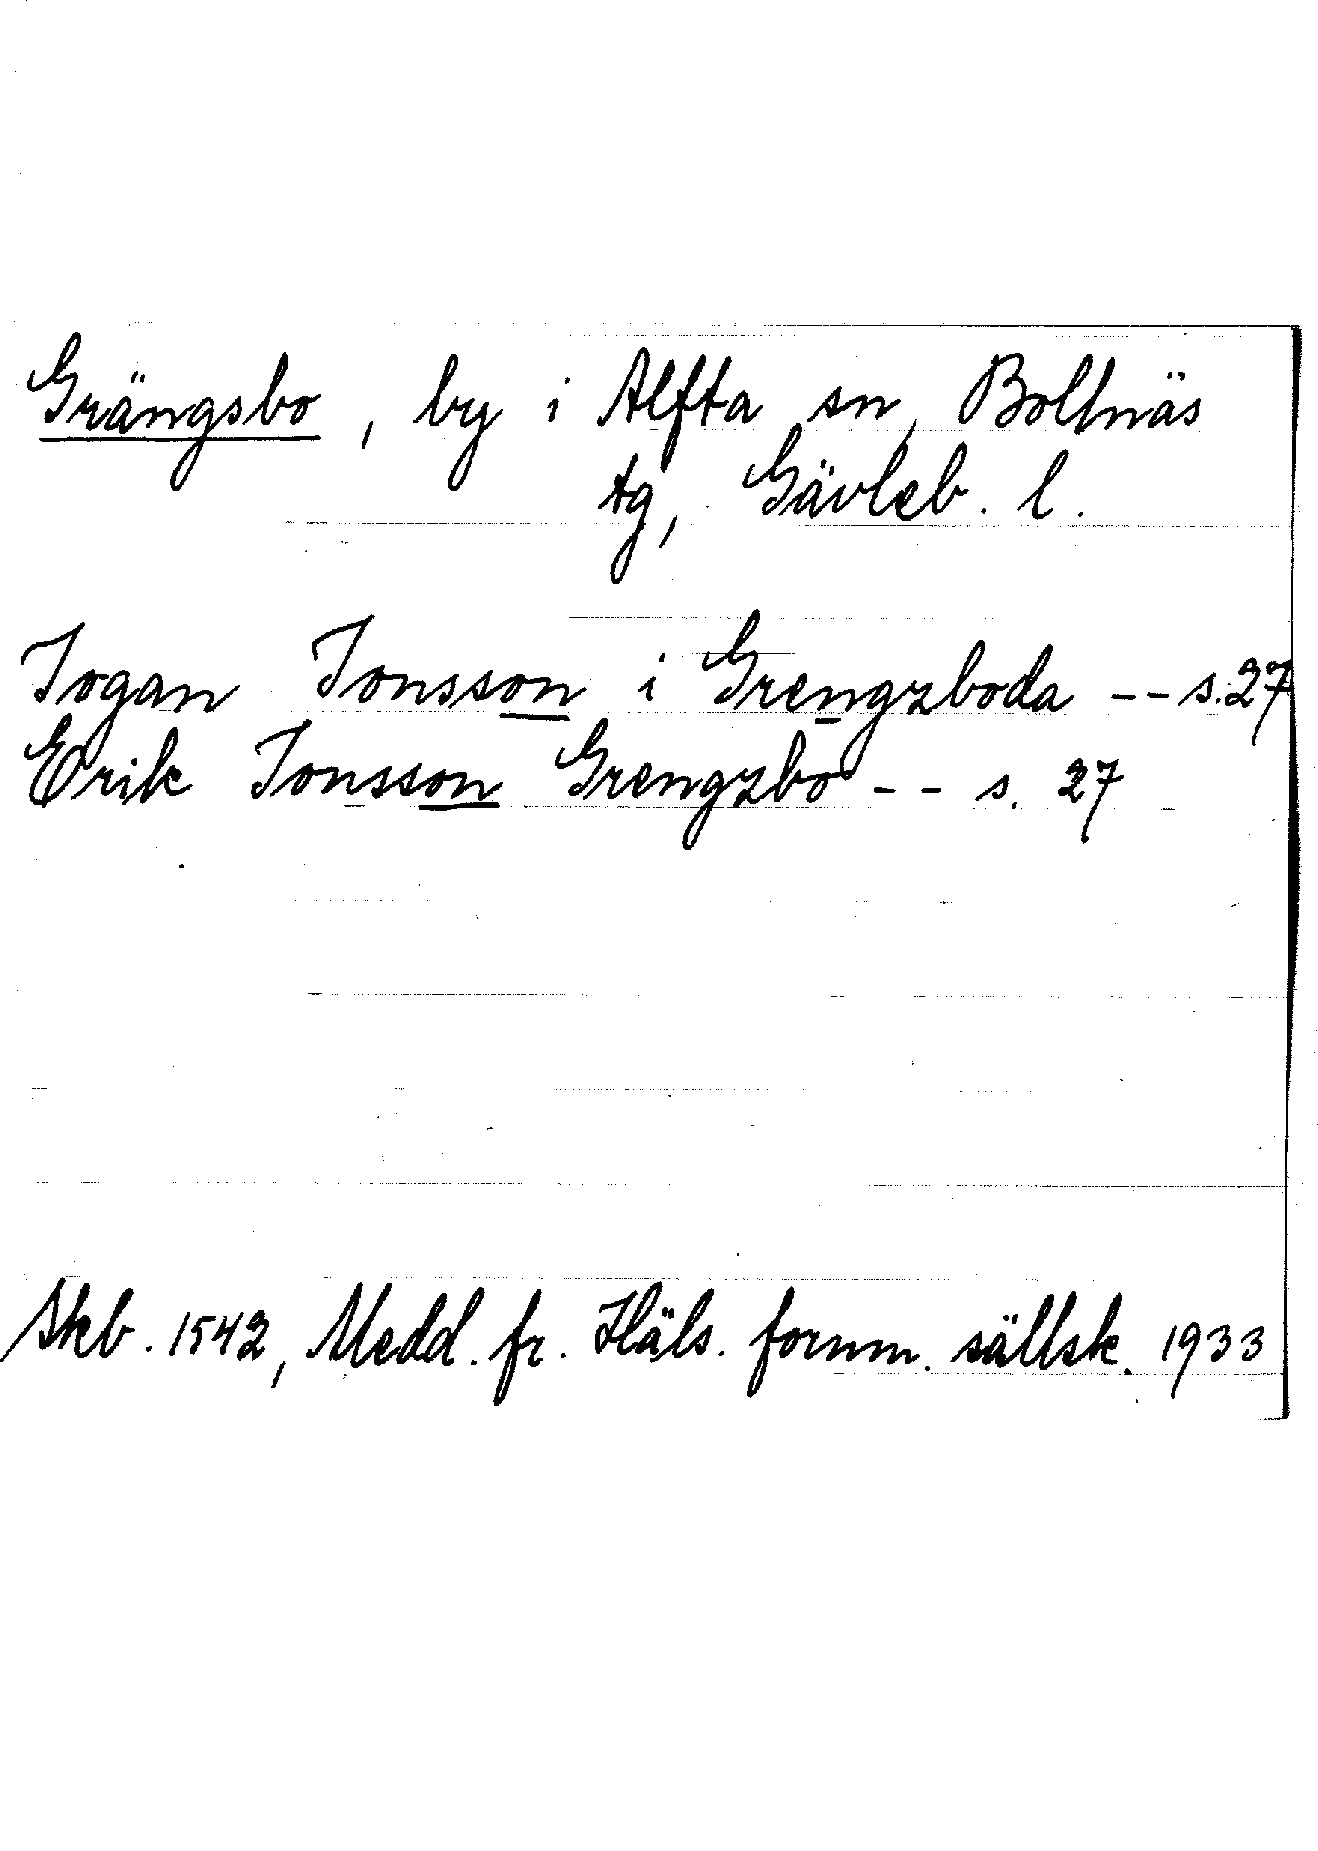 Grängsbo, by i Alfta sn, Bollnäs
tg, Gävleb. l.
Jogan Jonsson i Grengzboda -- s. 27
Erik Jonsson Grengzbo -- s. 27
Skb. 1542, Medd. fr. Häls. fornm. sällsk. 1933